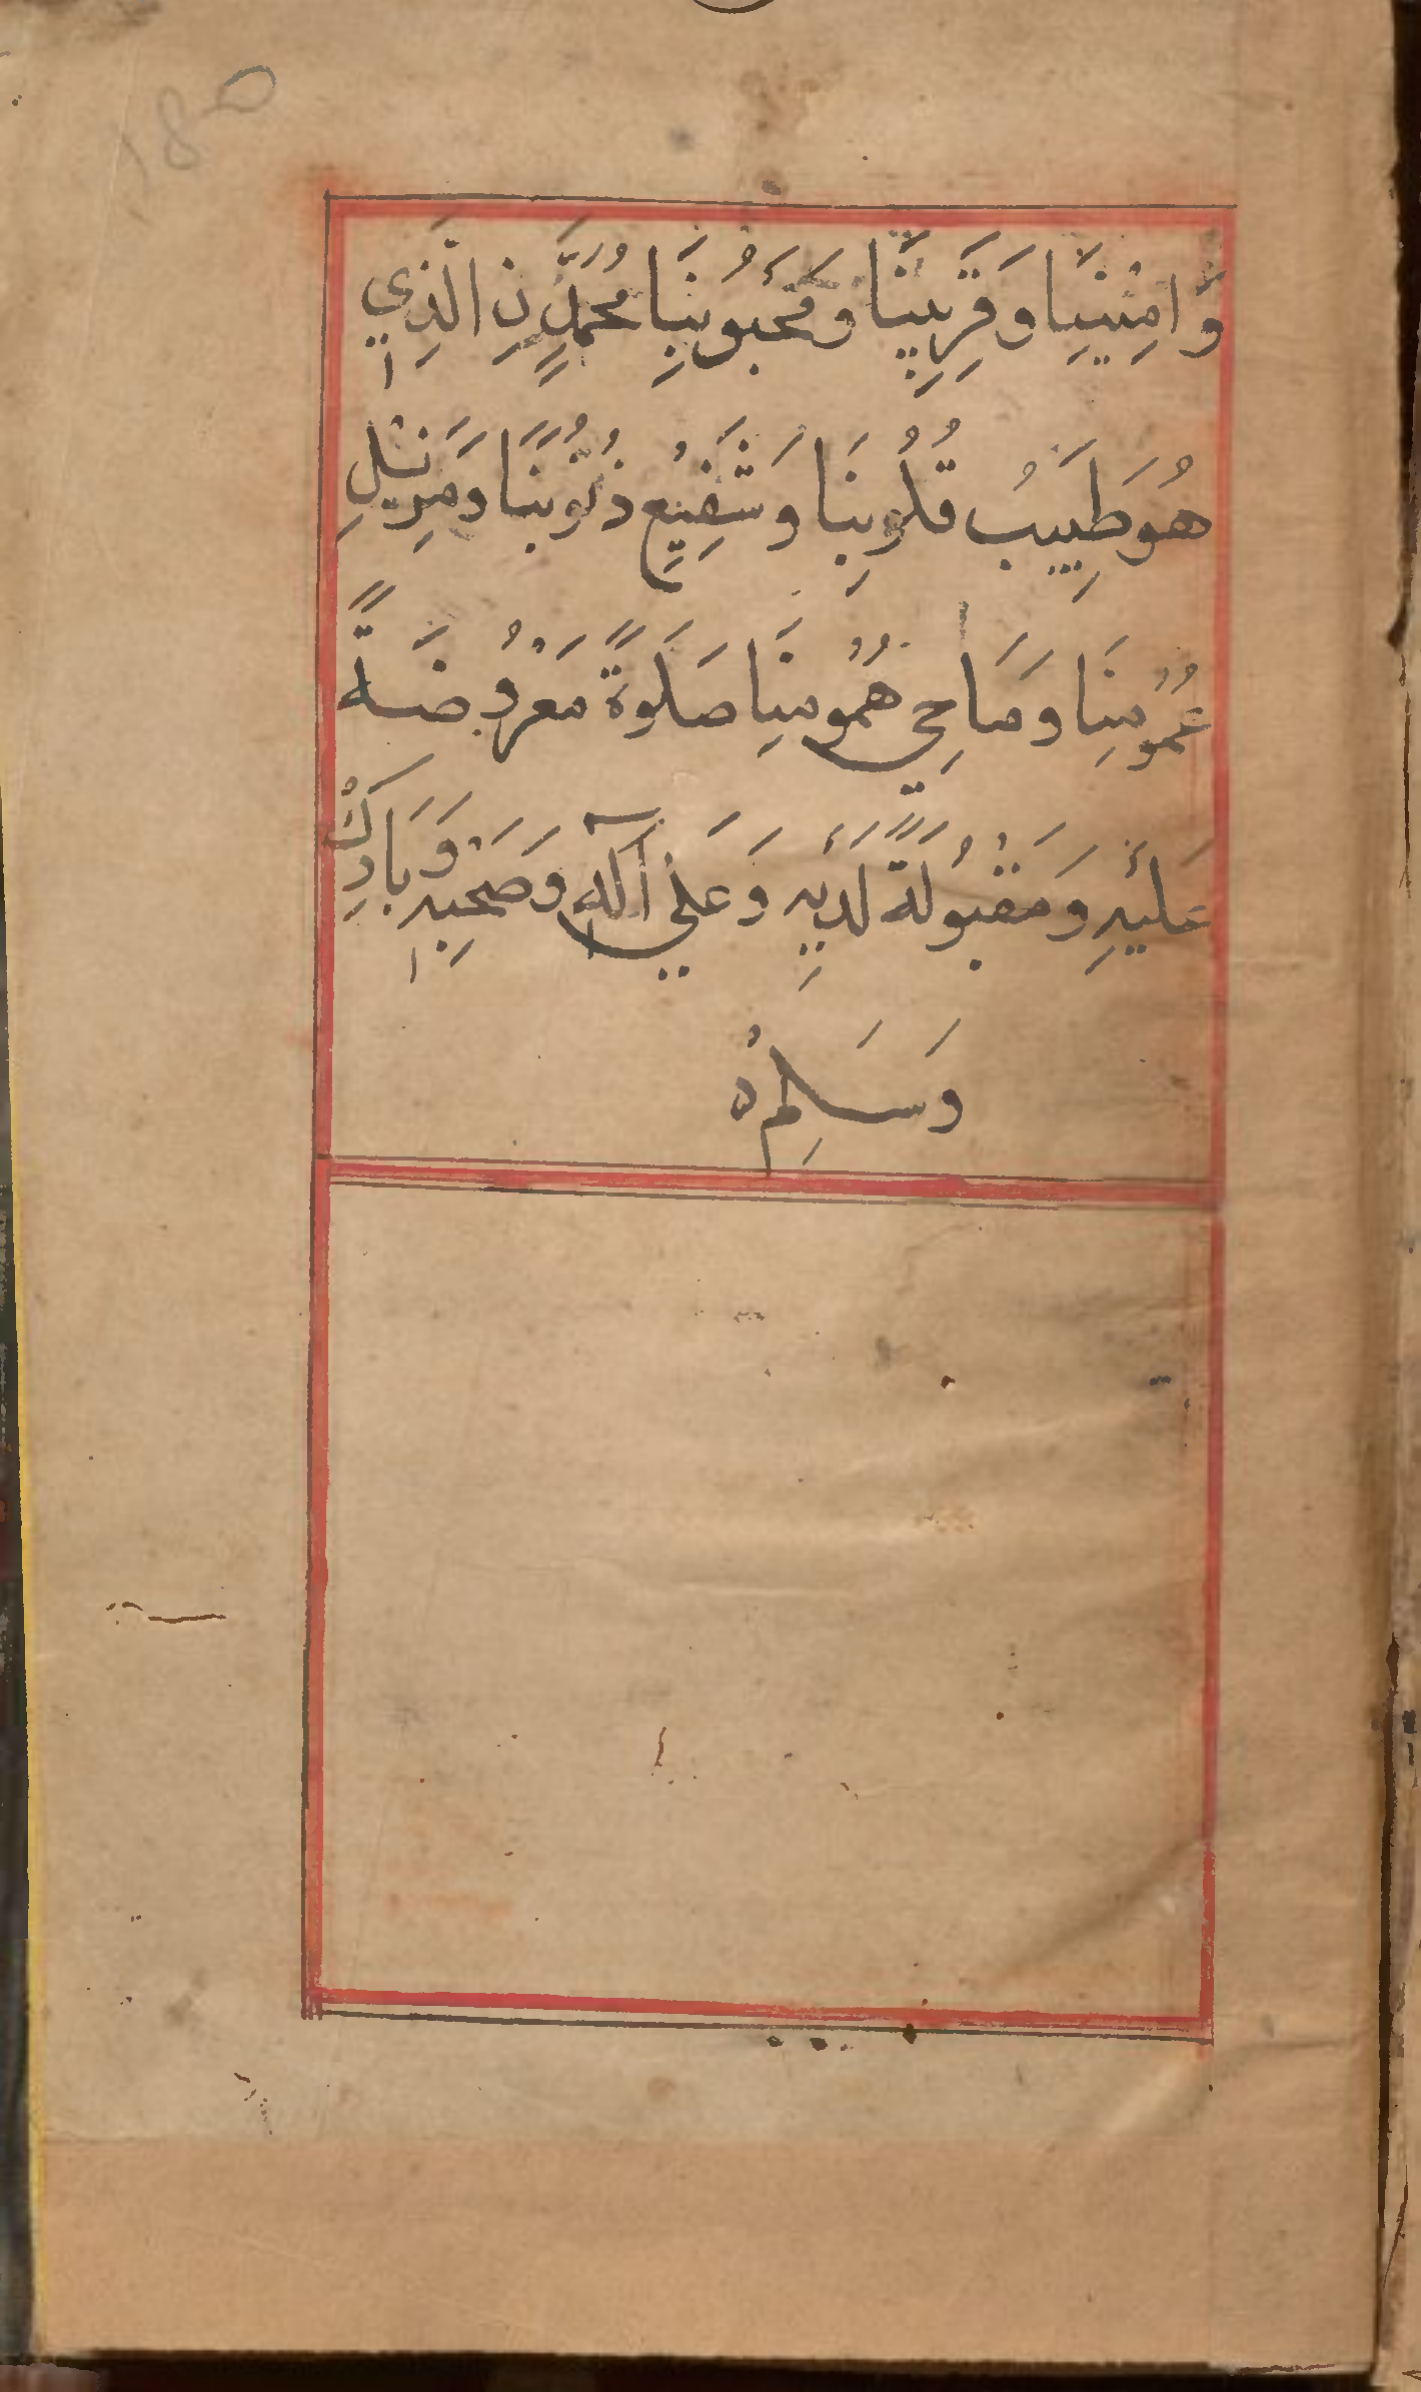 وَّاَمِيْنِنَا وَقَرِيْبِنَا وَمَحْبُوْبِنَا مُحَمَّدٍ نِ الَّذِي
هُوَ طَبِيبُ قُلُوبِنَا وَشَفِيْعِ ذُنُوْبِنَا وَمُزِيْلِ
غُمُوْمِنَا وَمَاحِي هُمُوْمِنَا صَلٰوةً مَعْرُوضَةً
عَلَيْهِ وَمَقْبُوْلَةً لَدَيْهِ وَعَلٰي آلِهِ وَصَحْبِهِ وَبَارِكْ
وَسَلِّمْ ه